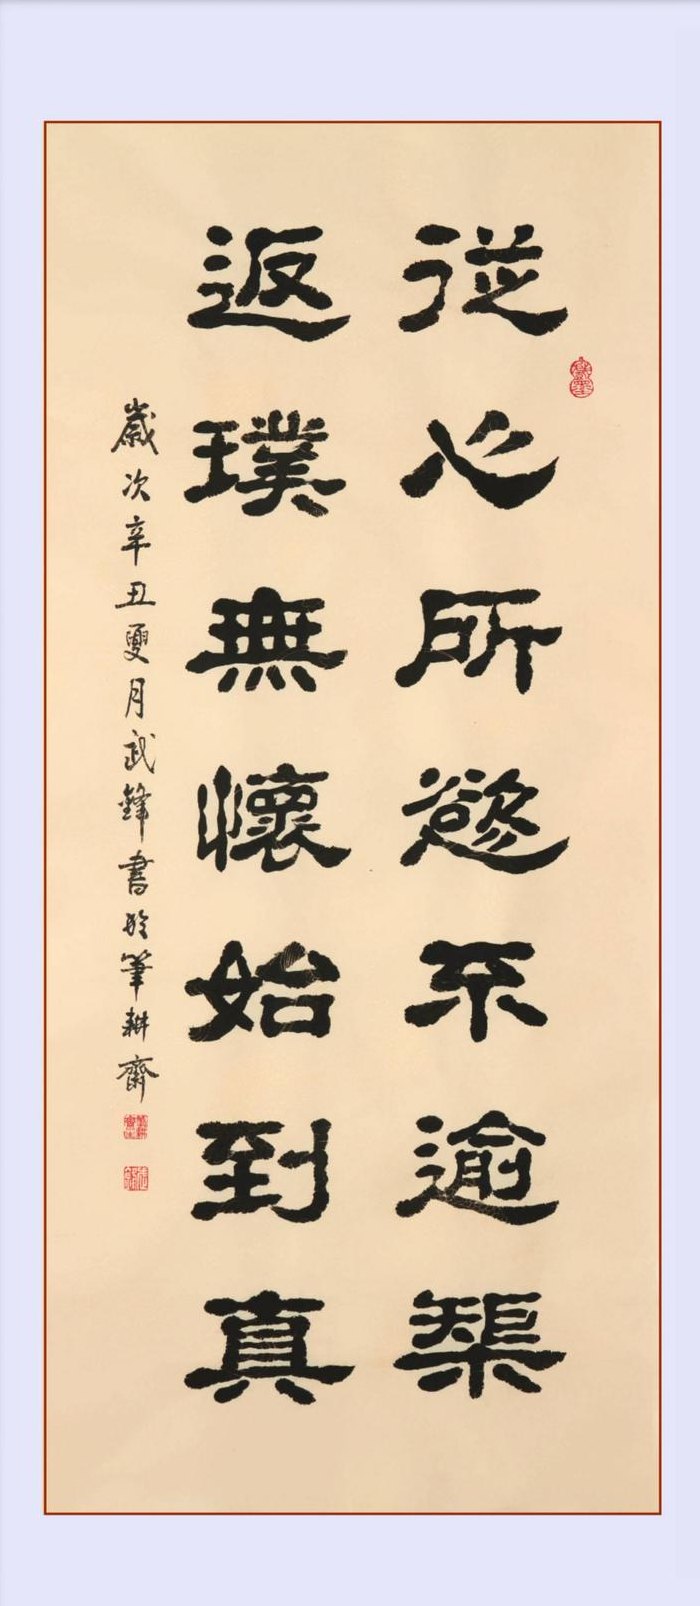 從心所慾不逾榘
返璞無懷始到真
歲次辛丑夏月武鋒書於筆耕齋